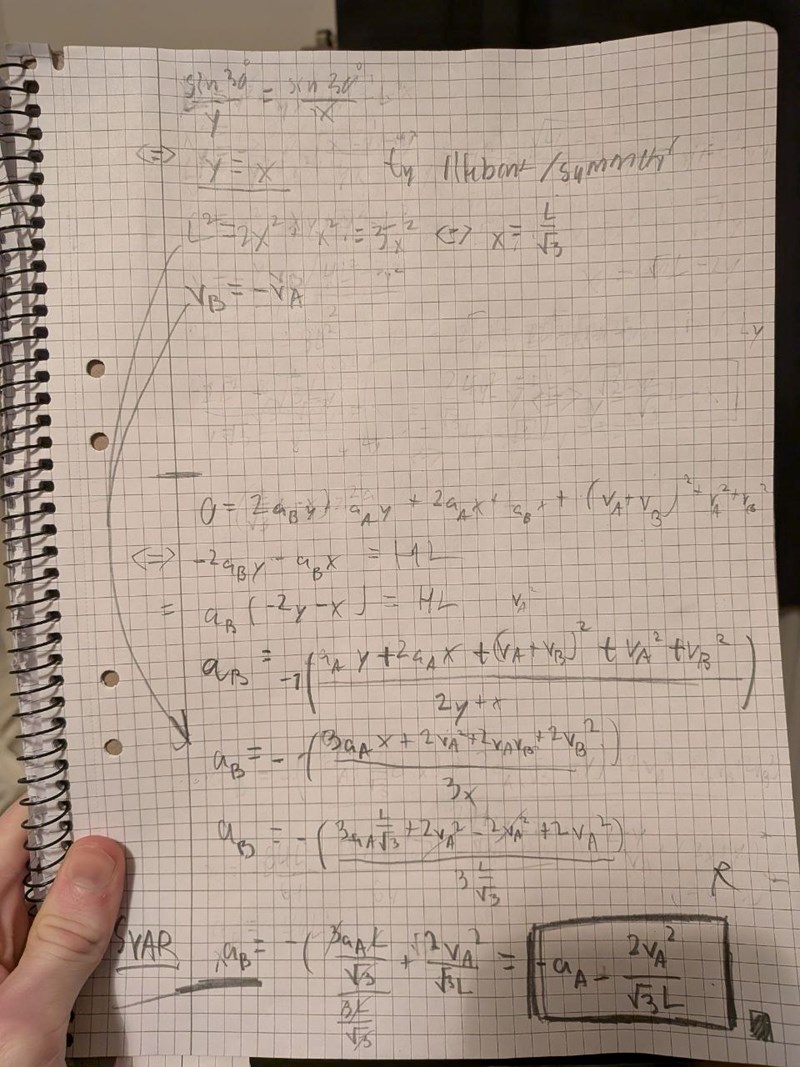 x/sin 30° = y/sin 30°
<=> x = y symmetri/
L² = 2x² + x² = 3x² <=> x = L/√3
v_B = -v_A
0 = 2a_B y + a_A y + 2a_A x + a_B x + (v_A + v_B)² + v_A² + v_B²
<=> -2a_B y - a_B x = HL
= a_B (-2y - x) = HL
a_B = -1 ((a_A y + 2a_A x + (v_A + v_B)² + v_A² + v_B²)/(2y + x))
a_B = - ((3a_A x + 2v_A² + 2v_A v_B + 2v_B²)/(3x))
a_B = - ((3a_A L/√3 + 2v_A² - 2v_A² + 2v_A²)/(3 L/√3))
SVAR a_B = - ((3a_A L/√3)/(3L/√3) + 2v_A²/(√3 L) = -a_A - 2v_A²/(√3 L)